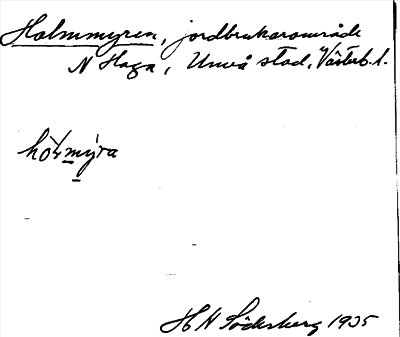 Holmmyren, jordbruksområde
N Haga, Umeå stad, Västerb. l.
hòlmýra
H N Söderberg 1935